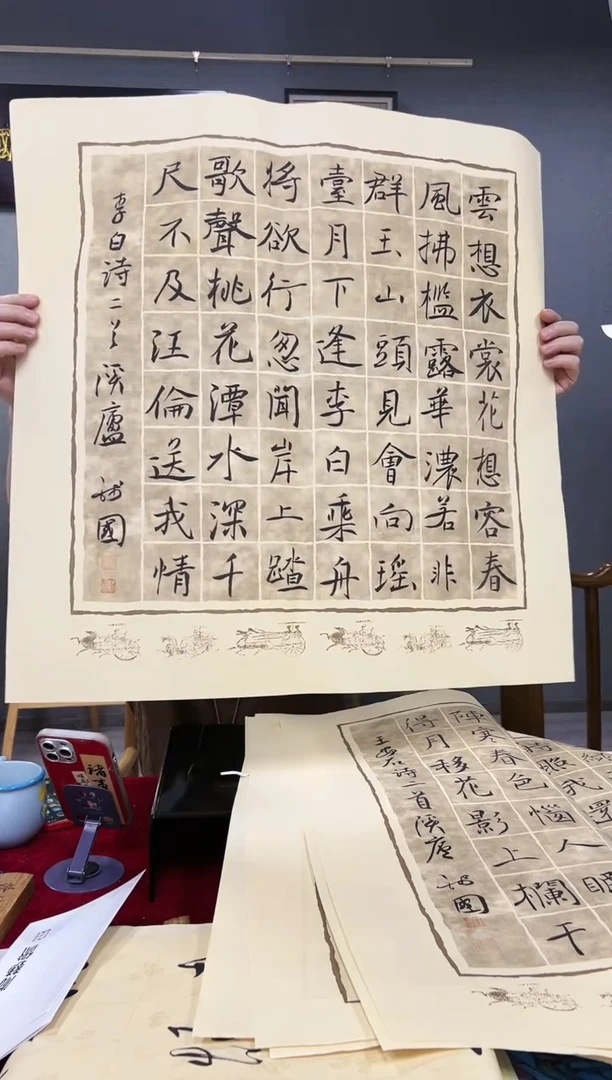 雲想衣裳花想容春
風拂檻露華濃若非
群玉山頭見會向瑤
臺月下逢李白乘舟
將欲行忽聞岸上踏
歌聲桃花潭水深千
尺不及汪倫送我情
李白诗二首溪廬國
陣寒春色惱人眠
得月移花影上欄干
王安石诗一首溪廬國